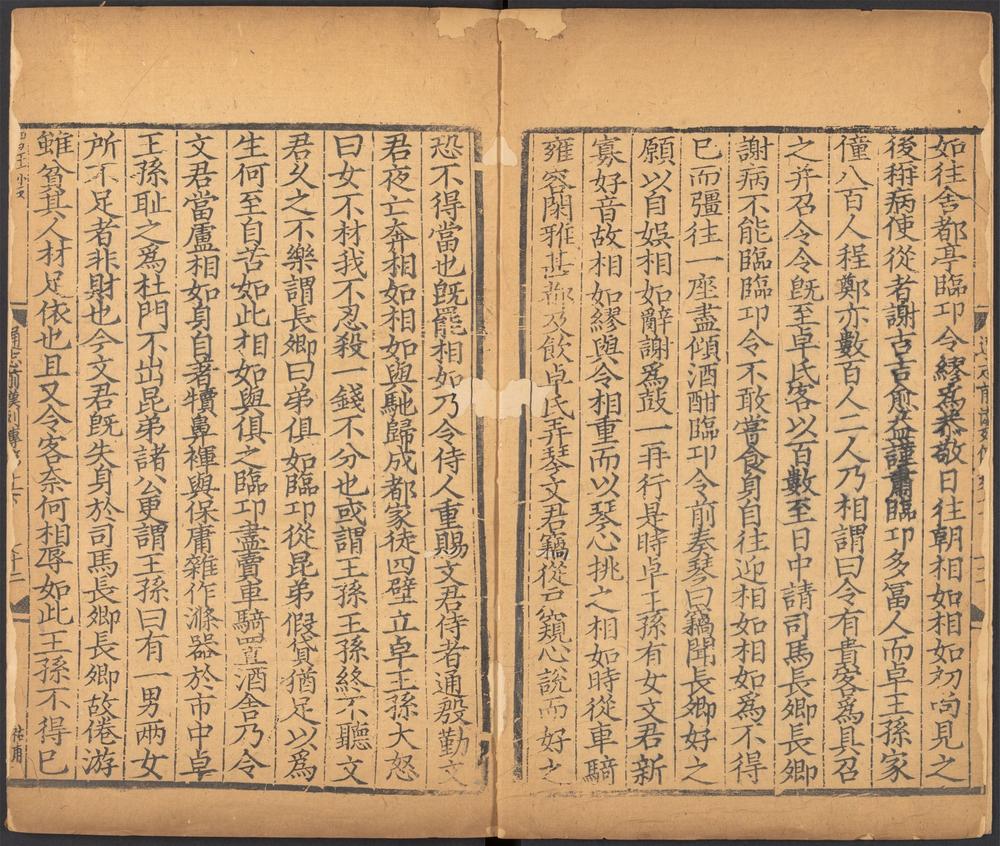 如往舍都亭臨卭令繆為恭敬日往朝相如相如初尚見之
後稱病使從者謝吉吉愈益謹肅臨卭多富人而卓王孫家
僮八百人程鄭亦數百人二人乃相謂曰令有貴客為具召
之并召令令旣至卓氏客以百數至日中請司馬長卿長卿
謝病不能臨臨卭令不敢嘗食身自往迎相如相如為不得
已而彊往一座盡傾酒酣臨卭令前奏琴曰竊聞長卿好之
願以自娛相如辭謝為鼓一再行是時卓王孫有女文君新
寡好音故相如繆與令相重而以琴心挑之相如時從車騎
雍容閑雅甚都及飲卓氏弄琴文君竊從戶窺心說而好之
恐不得當也旣罷相如乃令侍人重賜文君侍者通殷勤文
君夜亡奔相如相如與馳歸成都家徒四壁立卓王孫大怒
曰女不材我不忍殺一錢不分也或謂王孫王孫終不聽文
君久之不樂謂長卿曰弟俱如臨卭從昆弟假貸猶足以為
生何至自苦如此相如與俱之臨卭盡賣車騎置酒舍乃令
文君當盧相如身自著犢鼻褌與保庸雜作滌器於市中卓
王孫恥之為杜門不出昆弟諸公更謂王孫曰有一男兩女
所不足者非財也今文君旣失身於司馬長卿長卿故倦游
雖貧其人材足依也且又令客奈何相辱如此王孫不得已
通志前漢列傳
十二